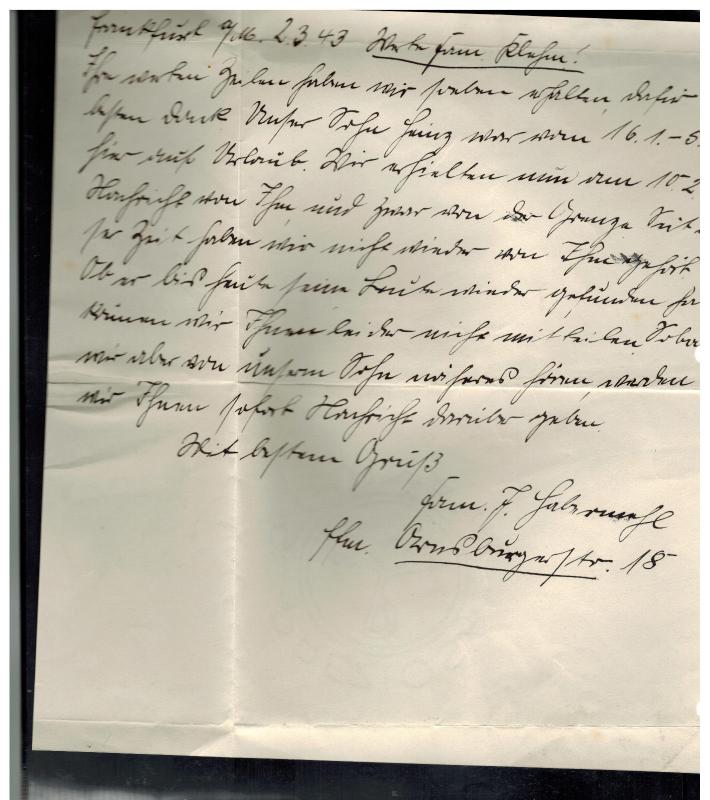 Frankfurt a/M. 2.3.43 Werte Fam. Klehm!
Ihre werten Zeilen haben wir soeben erhalten, dafür
besten Dank Unser Sohn Heinz war vom 16.1.-5.
hier auf Urlaub. Wir erhielten nun am 10.2
Nachricht von Ihm und zwar von der Grenze Seit
ser Zeit haben wir nicht wieder von Ihm gehört.
Ob er bis heute seine Leute wieder gefunden ha
können wir Ihnen leider nicht mitteilen. Soba
wir aber von unserm Sohn näheres hören, werden
wir Ihnen sofort Nachricht darüber geben.
Mit bestem Gruß
Fam. J. Habermehl
Ffm. Arnsburgerstr. 18